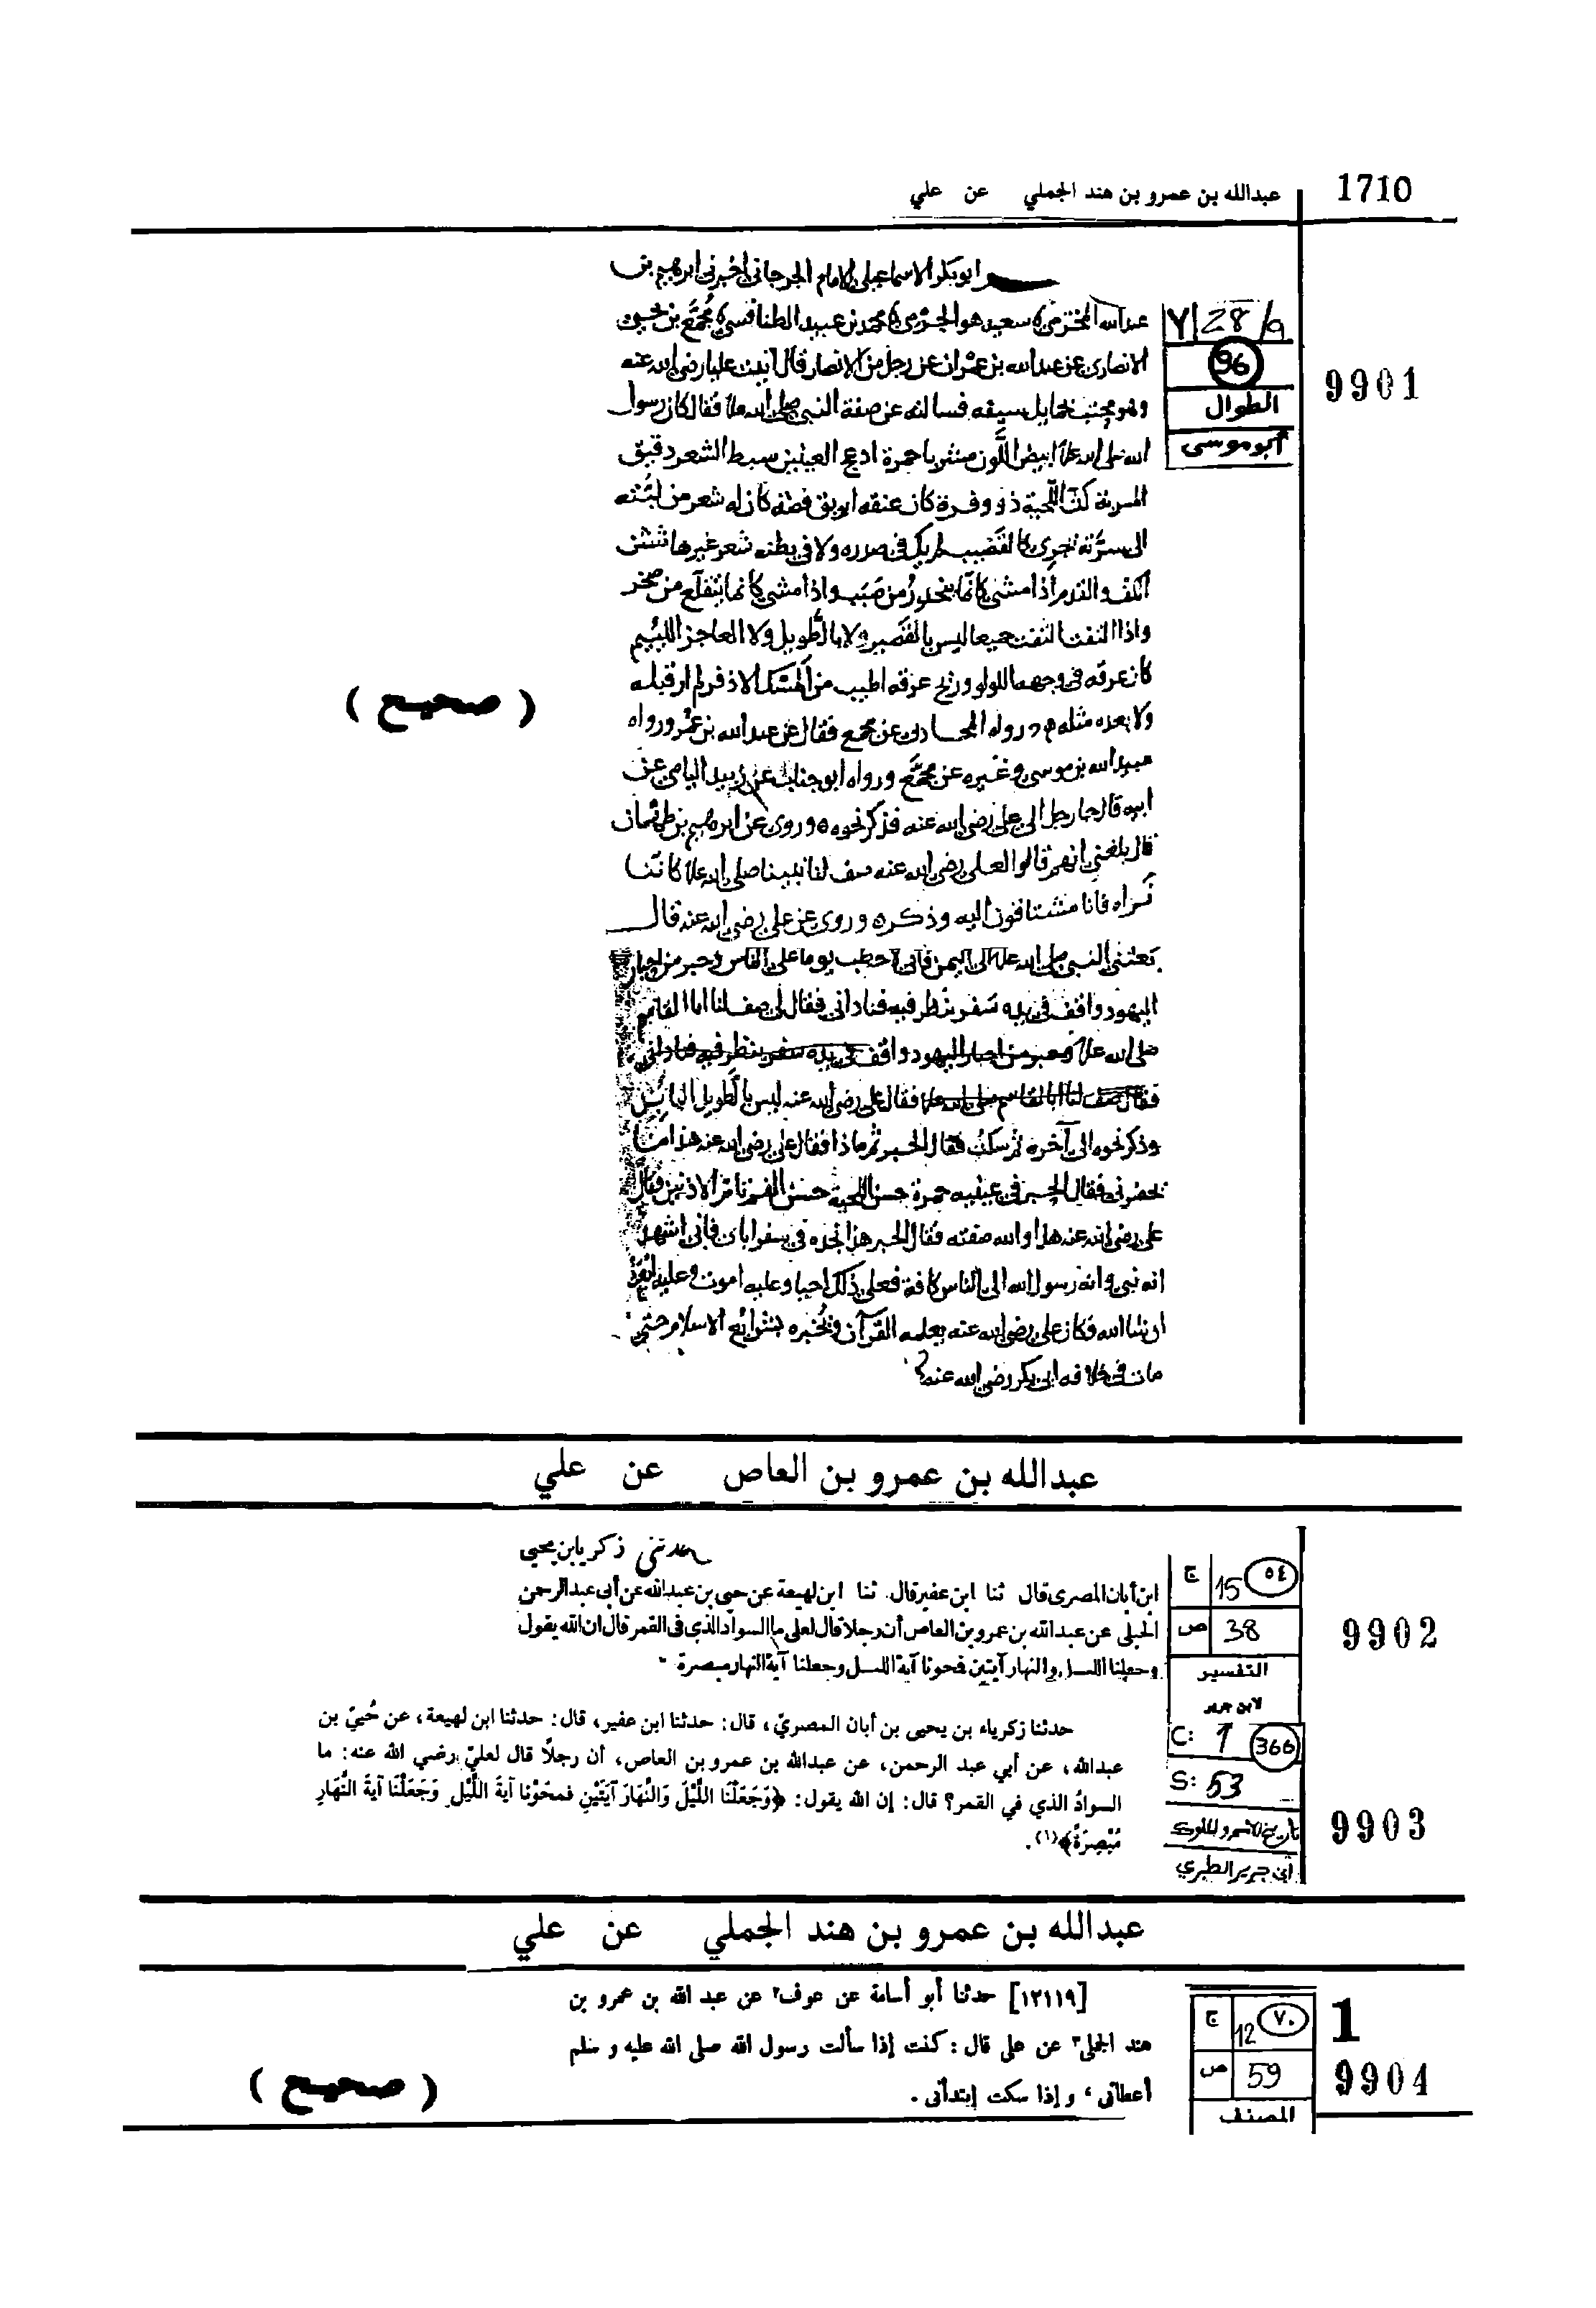 1710
عبدالله بن عمرو بن هند الجملي عن علي
ابو بكر الاسماعيلي الامام الجرجاني اخبرني ابرهيم بن
عبد الله المخرمي سعيد هو الجرمي محمد بن عبيد الطنافسي مُجَمَّع بن يحيى
الانصاري عن عبد الله بن عمران عن رجل من الانصار قال اتيت عليا رضي الله عنه
وهو محتب بحمايل سيفه فسالته عن صفة النبي صلى الله علا فقال كان رسول
الله صلى الله علا ابيض اللَّون مشربا حمرة ادعج العينين سبط الشعر دقيق
المسربة كث اللّحية ذو وفرة كان عنقه ابريق فضة كان له شعر من لبته
الى سرّته تجري كالقضيب لم يك في صدره ولا في بطنه شعر غيرها شثن
الكف والقدم اذا مشى كانما ينحدر من صَبَب واذا مشى كانما يتقلع من صخر
واذا التفت التفت جميعا ليس بالقصير ولا بالطويل ولا العاجز اللئيم
كان عرقه في وجهه اللولو وريح عرقه اطيب من المسك الاذفر لم ار قبله
ولا بعده مثله رواه عن مجمع فقال عن عبد الله بن عمر ورواه
عبيد الله بن موسى وغيره عن مجمَّع ورواه ابو جناب عن زبيد اليامي عن
ابيه قال جا رجل الى علي رضي الله عنه فذكر نحوه وروى عن ابرهيم بن طهمان
قال بلغني انهم قالوا لعلي رضي الله عنه صف لنا نبينا صلى الله علا كاننا
نراه فانا مشتاقون اليه وذكره وروى عن علي رضي الله عنه قال
بعثني النبي صلى الله علا الى اليمن فاني لاخطب يوما على الناس وحبر من احبار
اليهود واقف في يده سفر ينظر فيه فناداني فقال لي صف لنا ابا القاسم
صلى الله علا وحبر من احبار اليهود واقف في يده سفر ينظر فيه فناداني
فقال صف لنا ابا القاسم صلى الله علا فقال علي رضي الله عنه ليس بالطويل البائن
وذكر نحوه الى آخره ثم سكت فقال الحبر ثم ماذا فقال علي رضي الله عنه هذا ما
يحضرني فقال الحبر في عينيه حمرة حسن اللحية حسن الفم تام الاذنين فقال
علي رضي الله عنه هذا والله صفته فقال الحبر هذا نجده في سفر اباي فاني اشهد
انه نبي وانه رسول الله الى الناس كافة فعلى ذلك احيا وعليه اموت وعليه ابعث
ان شا الله فكان علي رضي الله عنه يعلمه القرآن ويُخبره بشرائع الاسلام حتى
مات في خلافه ابي بكر رضي الله عنه
Y 28/a
96
الطوال
أبو موسى
9901
( صحيح )
عبدالله بن عمرو بن العاص عن علي
حدثني زكريا بن يحيى
ابن أبان المصرى قال ثنا ابن عفير قال ثنا ابن لهيعة عن حيى بن عبد الله عن أبى عبد الرحمن
الحبلى عن عبد الله بن عمرو بن العاص أن رجلا قال لعلى ما السواد الذى فى القمر قال ان الله يقول
وجعلنا الليل والنهار آيتين فمحونا آية الليل وجعلنا آية النهار مبصرة
ج 15 ٥٤
ص 38
التفسير
لابن جرير
9902
حدثنا زكرياء بن يحيى بن أبان المصريّ، قال: حدثنا ابن عفير، قال: حدثنا ابن لهيعة، عن حُييّ بن
عبدالله، عن أبي عبد الرحمن، عن عبدالله بن عمرو بن العاص، أن رجلاً قال لعليّ رضي الله عنه: ما
السوادُ الذي في القمر؟ قال: إن الله يقول: ﴿وَجَعَلْنَا اللَّيْلَ وَالنَّهَارَ آيَتَيْنِ فَمَحَوْنَا آيَةَ اللَّيْلِ وَجَعَلْنَا آيَةَ النَّهَارِ
مُبْصِرَةً﴾(١).
C: 1 366
S: 53
تاريخ الأمم والملوك
ابن جرير الطبري
9903
عبدالله بن عمرو بن هند الجملي عن علي
[١٢١١٩] حدثنا أبو أسامة عن عوف٢ عن عبد الله بن عمرو بن
هند الجملى٣ عن على قال : كنت إذا سألت رسول الله صلى الله عليه و سلم
أعطانى ، و إذا سكت إبتدأنى .
ج 12 ٧٠
ص 59
المصنف
1
9904
( صحيح )